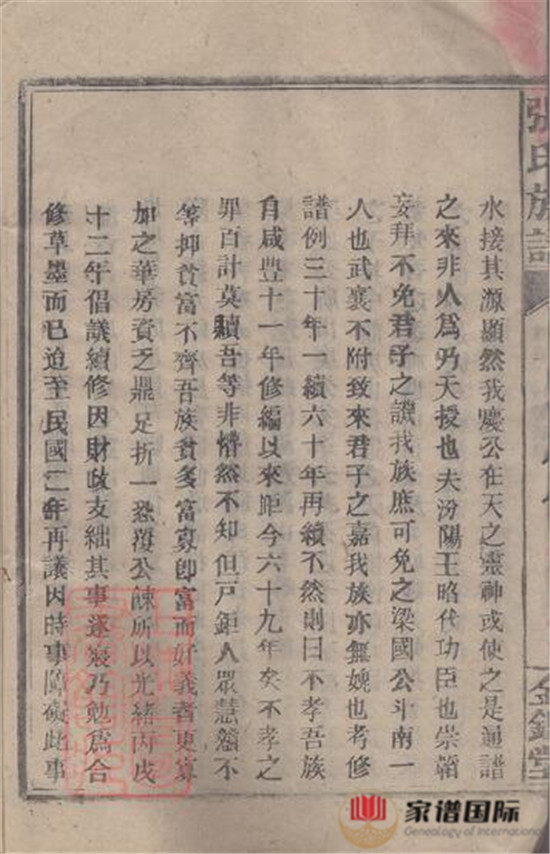 張氏族譜
金鑑堂
水接其源顯然我慶公在天之靈神或使之是通譜
之來非人爲乃天授也夫汾陽王昭代功臣也崇韜
妄拜不免君子之譏我族庶可免之梁國公斗南一
人也武襄不附致來君子之嘉我族亦無媿也考修
譜例三十年一續六十年再續不然則曰不孝吾族
自咸豐十一年修編以來距今六十九年矣不孝之
罪百計莫贖吾等非懵然不知但戸鉅人眾慧魯不
等抑貧富不齊吾族貧多富寡卽富而好義者更寡
加之華房資乏鼎足折一恐覆公餗所以光緒丙戌
十二年倡議續修因財政支絀其事遂寢乃勉爲合
修草墨而已迨至民國二年再議因時事障礙此事
家谱国际
Genealogy of International